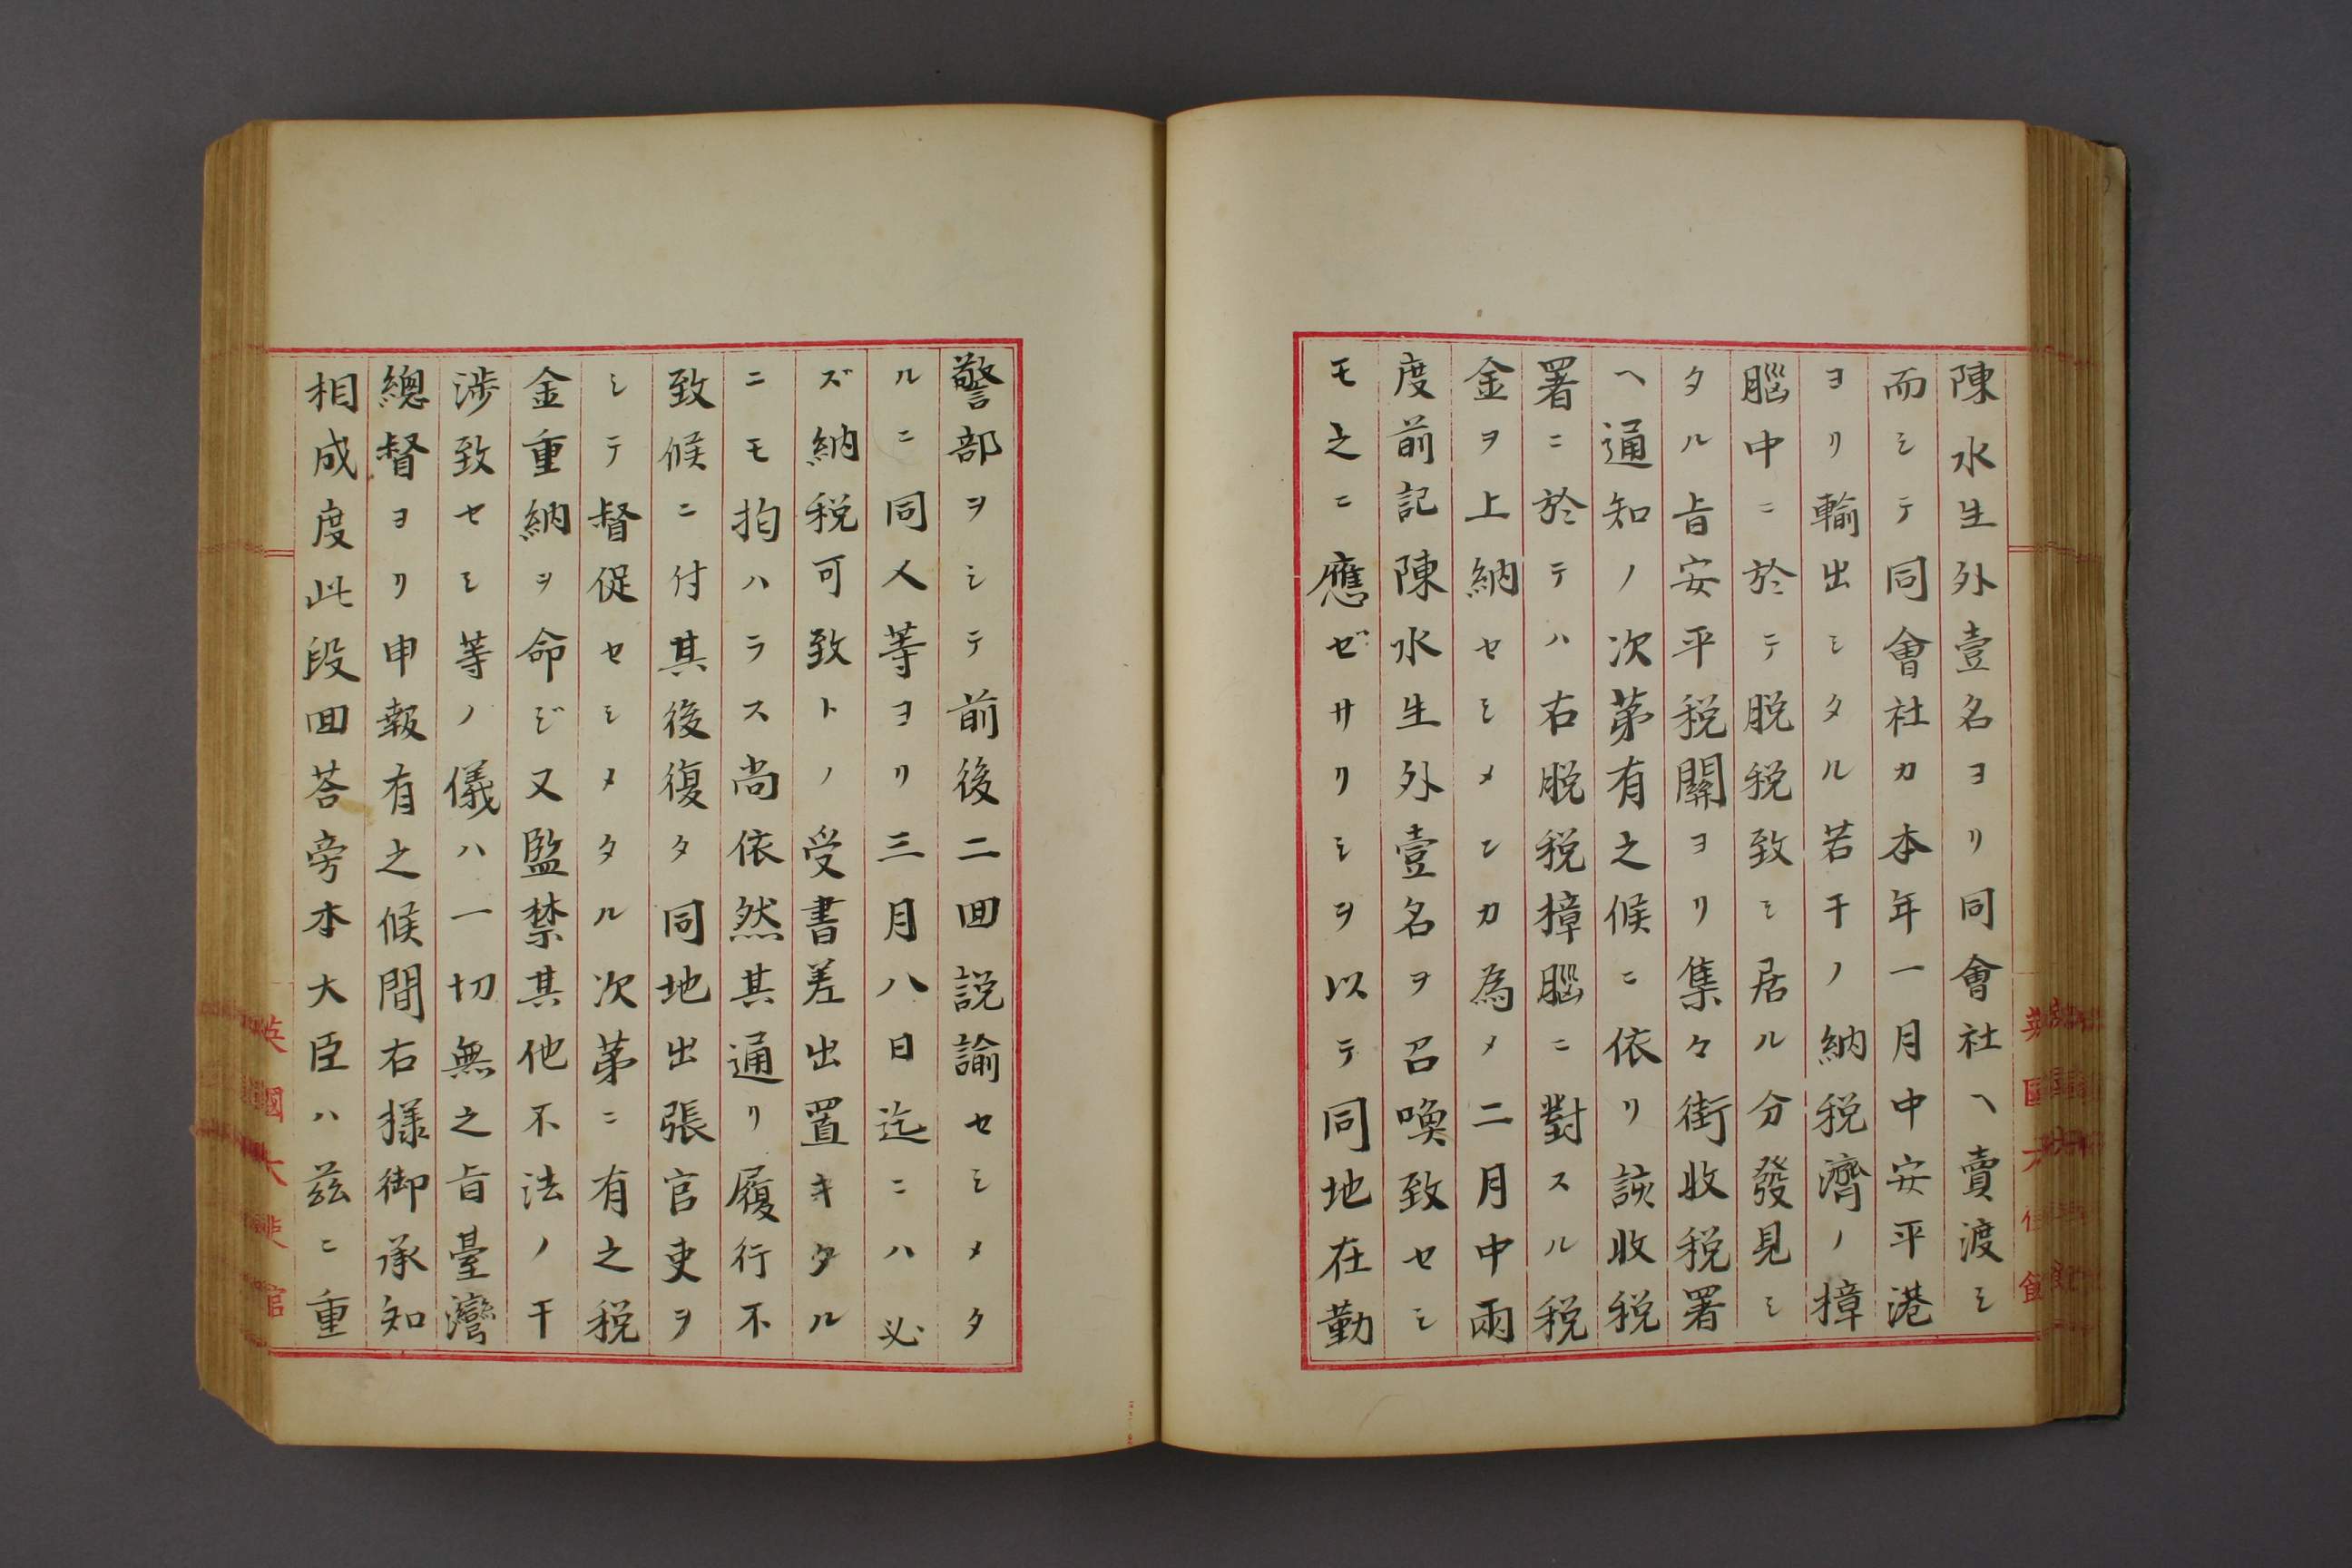 陳水生外壹名ヨリ同會社ヘ賣渡シ
而シテ同會社カ本年一月中安平港
ヨリ輸出シタル若干ノ納税濟ノ樟
腦中ニ於テ脱税致シ居ル分發見シ
タル旨安平税關ヨリ集々街收税署
ヘ通知ノ次第有之候ニ依リ該收税
署ニ於テハ右脱税樟腦ニ對スル税
金ヲ上納セシメンカ為メ二月中兩
度前記陳水生外壹名ヲ召喚致セシ
モ之ニ應ゼサリシヲ以テ同地在勤
警部ヲシテ前後二回説諭セシメタ
ルニ同人等ヨリ三月八日迄ニハ必
ズ納税可致トノ受書差出置キタル
ニモ拘ハラス尚依然其通リ履行不
致候ニ付其後復タ同地出張官吏ヲ
シテ督促セシメタル次第ニ有之税
金重納ヲ命ジ又監禁其他不法ノ干
渉致セシ等ノ儀ハ一切無之旨臺灣
總督ヨリ申報有之候間右様御承知
相成度此段回荅旁本大臣ハ茲ニ重